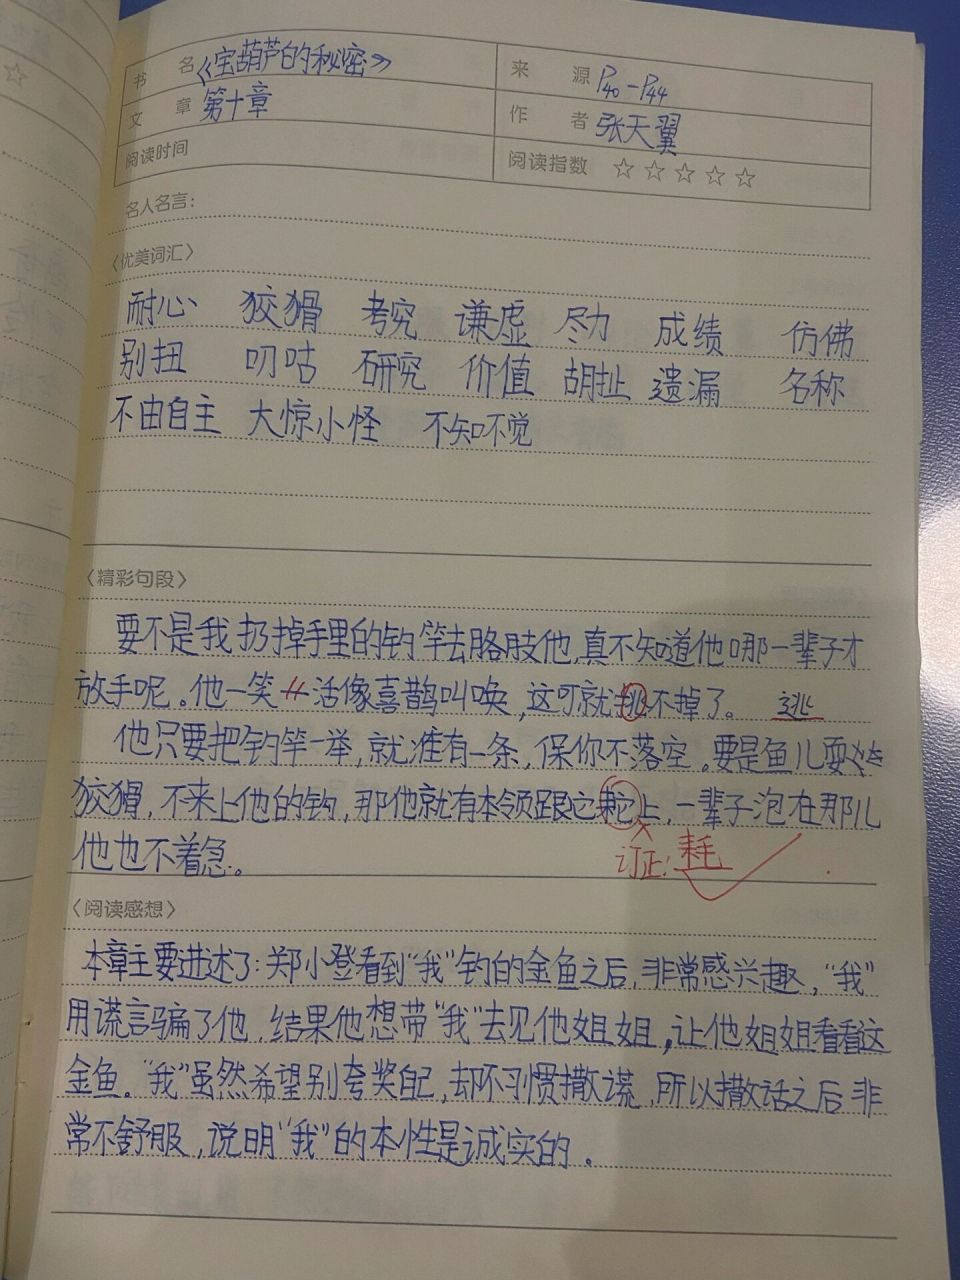 书 名 《宝葫芦的秘密》 来 源 P40-P44
文 章 第十章 作 者 张天翼
阅读时间 阅读指数 ☆☆☆☆☆
名人名言：
〈优美词汇〉
耐心 狡猾 考究 谦虚 尽力 成绩 仿佛
别扭 叨咕 研究 价值 胡扯 遗漏 名称
不由自主 大惊小怪 不知不觉
〈精彩句段〉
要不是我扔掉手里的钓竿去胳肢他,真不知道他哪一辈子才
放手呢。他一笑 活像喜鹊叫唤,这可就逃不掉了。 逃
他只要把钓竿一举,就准有一条,保你不落空。要是鱼儿耍
狡猾,不来上他的钩,那他就有本领跟它上,一辈子泡在那儿
他也不着急。
订正:耗
〈阅读感想〉
本章主要讲述了:郑小登看到“我”钓的金鱼之后,非常感兴趣,“我”
用谎言骗了他,结果他想带“我”去见他姐姐,让他姐姐看看这
金鱼。“我”虽然希望别夸奖自己,却不习惯撒谎,所以撒话之后非
常不舒服,说明“我”的本性是诚实的.